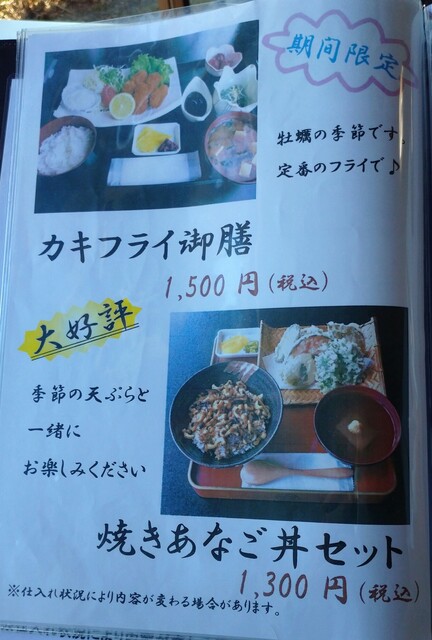 期間限定
牡蠣の季節です。
定番のフライで♪
カキフライ御膳
1,500 円(税込)
大好評
季節の天ぷらと
一緒に
お楽しみください
焼きあなご丼セット
1,300 円(税込)
※仕入れ状況により内容が変わる場合があります。